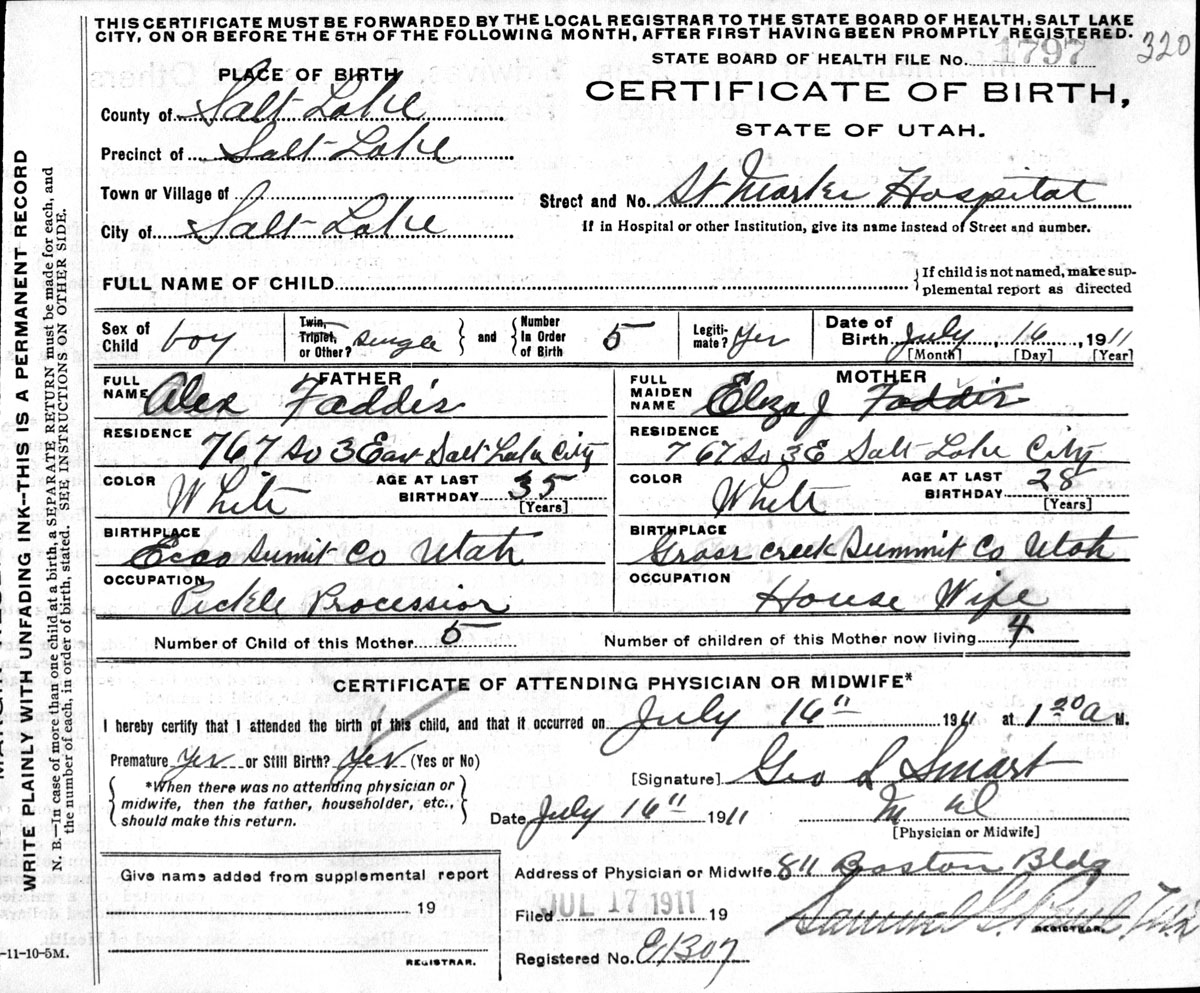 THIS CERTIFICATE MUST BE FORWARDED BY THE LOCAL REGISTRAR TO THE STATE BOARD OF HEALTH, SALT LAKE
CITY, ON OR BEFORE THE 5TH OF THE FOLLOWING MONTH, AFTER FIRST HAVING BEEN PROMPTLY REGISTERED.
320
STATE BOARD OF HEALTH FILE No. 1797
PLACE OF BIRTH
CERTIFICATE OF BIRTH,
STATE OF UTAH.
County of Salt Lake
Precinct of Salt Lake
Town or Village of
City of Salt Lake
Street and No. St Marks Hospital
If in Hospital or other Institution, give its name instead of Street and number.
FULL NAME OF CHILD
If child is not named, make sup-
plemental report as directed
Sex of Child boy
Twin, Triplet, or Other? single and Number In Order of Birth 5
Legiti-mate? Yes
Date of Birth July 16, 1911
[Month] [Day] [Year]
FATHER
FULL NAME Alex Faddis
RESIDENCE 767 So 3 East Salt Lake City
COLOR White AGE AT LAST BIRTHDAY 35
[Years]
BIRTHPLACE Ecco Sumit Co Utah
OCCUPATION Pickle Processior
MOTHER
FULL MAIDEN NAME Eliza J Faddis
RESIDENCE 767 So 3 E Salt Lake City
COLOR White AGE AT LAST BIRTHDAY 28
[Years]
BIRTHPLACE Grass Creek Summit Co Utah
OCCUPATION House Wife
Number of Child of this Mother 5 Number of children of this Mother now living 4
CERTIFICATE OF ATTENDING PHYSICIAN OR MIDWIFE*
I hereby certify that I attended the birth of this child, and that it occurred on July 16" 1911 at 1 20 a M.
Premature Yes or Still Birth? Yes (Yes or No)
[Signature] Geo S Smart
*When there was no attending physician or
midwife, then the father, householder, etc.,
should make this return.
Date July 16" 1911 M D
[Physician or Midwife]
Give name added from supplemental report
19
REGISTRAR.
Address of Physician or Midwife 811 Boston Bldg
Filed JUL 17 1911 19
Samuel G. Paul
REGISTRAR.
Registered No. E1307
-11-10-5M.
WRITE PLAINLY WITH UNFADING INK--THIS IS A PERMANENT RECORD
N. B.—In case of more than one child at a birth, a SEPARATE RETURN must be made for each, and
the number of each, in order of birth, stated. SEE INSTRUCTIONS ON OTHER SIDE.